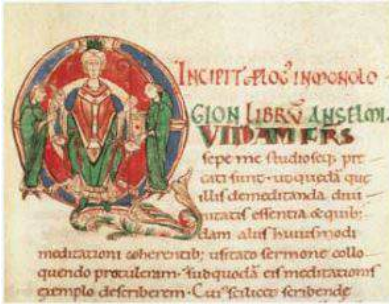 INCIPIT PLOG' IN MONOLO
GION LIBRV ANSELMI.
QUIDAM FRS
sepe me studioseq; pre
cati sunt. ut quedā que
illis de meditanda divi
nitatis essentia & quib;
dam aliis huiusmodi
meditationi coherentib; usitato sermone collo
quendo protuleram. sub quodā eis meditationis
exemplo describerem. Cui' scilicet scribende